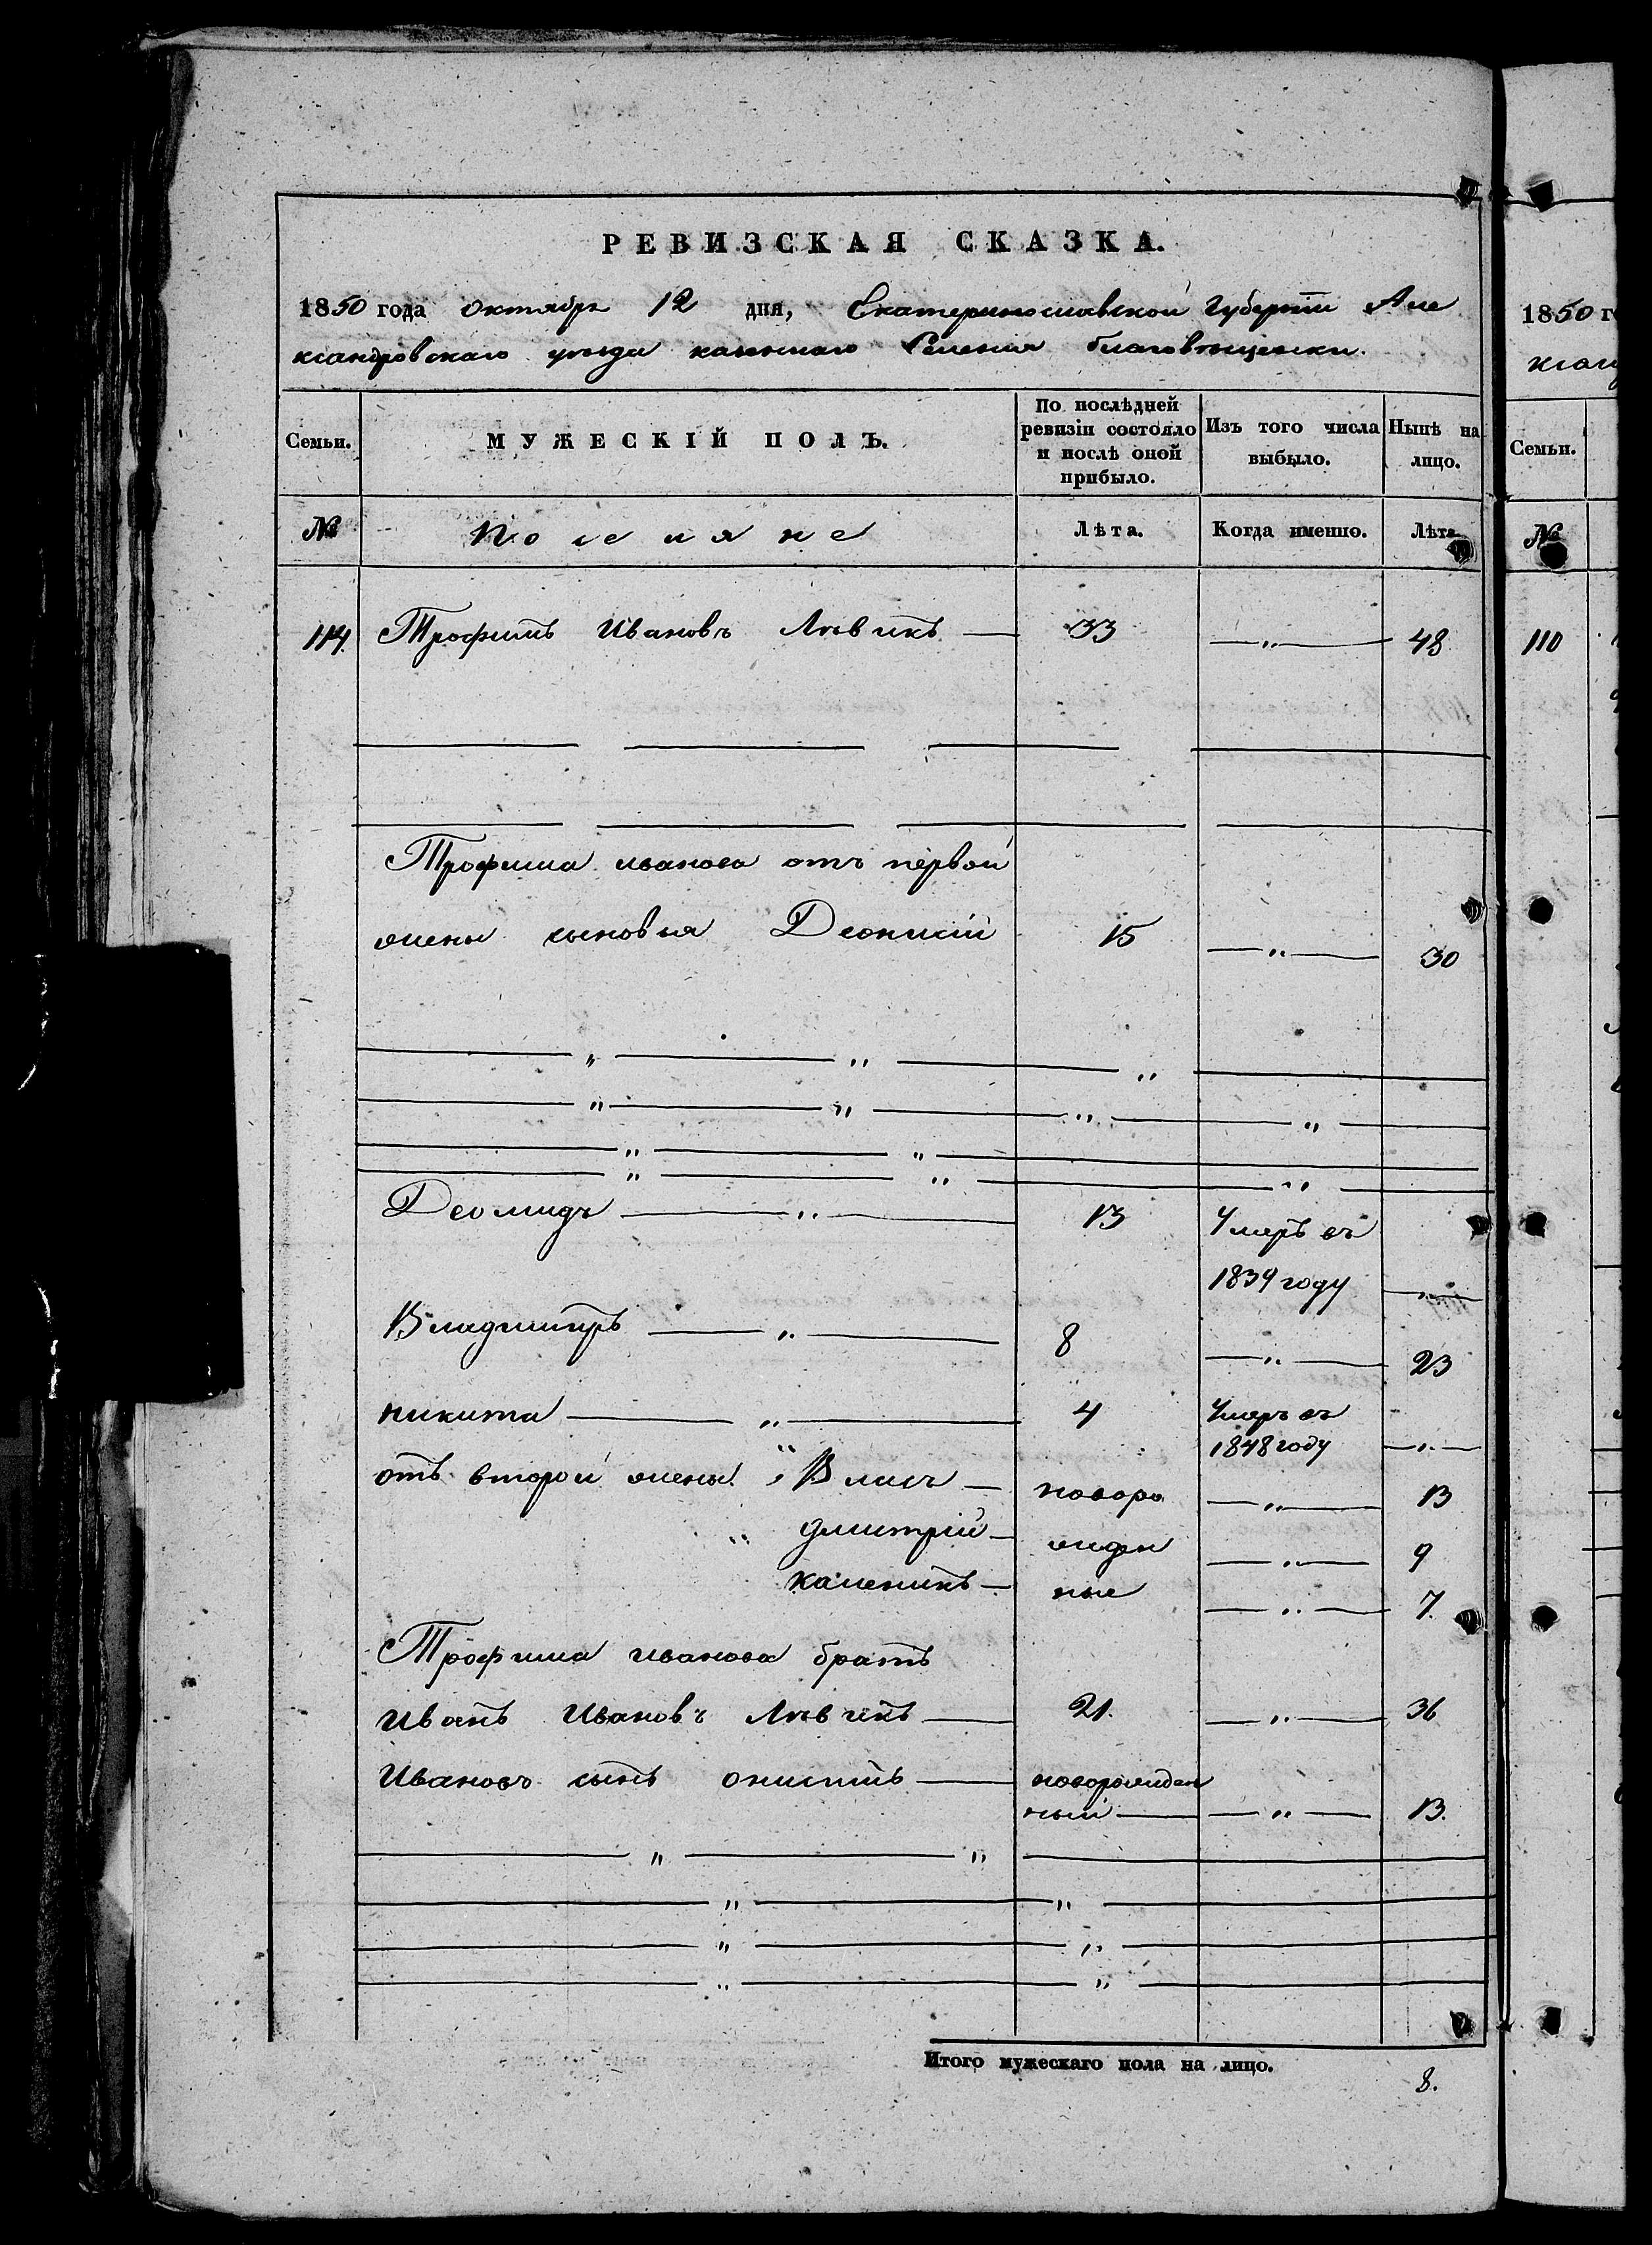 РЕВИЗСКАЯ СКАЗКА.
1850 года октября 12 дня, Екатеринославской Губернiи Але
ксандровскаго уѣзда казеннаго Селенiя благовѣщенки.
Семьи.
МУЖЕСКIЙ ПОЛЪ.
По послѣдней ревизiи состояло и послѣ оной прибыло.
Изъ того числа выбыло.
Нынѣ на лицо.
№
Поселяне
Лѣта.
Когда именно.
Лѣта.
114. Трофимъ Ивановъ 33 — „ — 48
Трофима иванова отъ первой
жены сыновья Деонисiй 15 — „ — 30
Деомидъ — „ — 13 Умеръ въ
1839 году — „ —
Владимиръ — „ — 8 — „ — 23
никита — „ — 4 Умеръ въ
1848 году — „ —
отъ второй жены „ Власъ — новоро — „ — 13
„ дмитрiй — жден — „ — 9
каленикъ — ные — „ — 7.
Трофима иванова братъ
иванъ Ивановъ — 21. — „ — 36
Ивановъ сынъ онисимъ — новорожден
ный — — „ — 13.
Итого мужескаго пола на лицо.
8.
1850 г
ксан
Семьи.
№
110